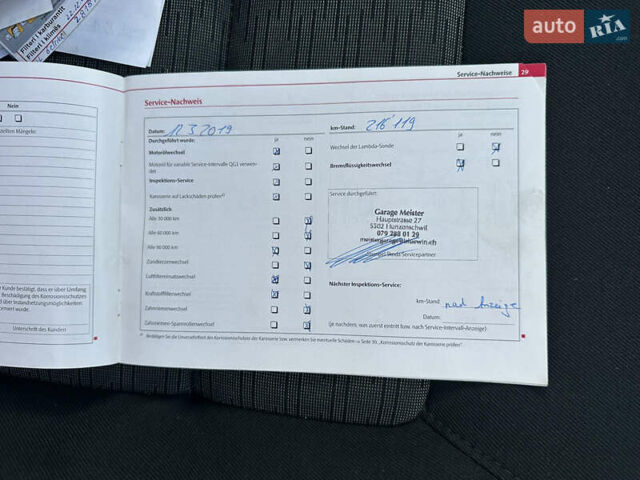 auto RIA .com
Filteri i karburantit
Filteri i klimës
Service-Nachweise 29
Nein
Service-Nachweis
Datum: 12.3.2019
km-Stand: 216'119
Durchgeführt wurde: ja nein
ja nein
Motorölwechsel
Wechsel der Lambda-Sonde
Motoröl für variable Service-Intervalle QG1 verwen-
det
Bremsflüssigkeitswechsel
Inspektions-Service
Karosserie auf Lackschäden prüfen
Service durchgeführt:
Zusätzlich
Garage Meister
Alle 30 000 km
Hauptstrasse 27
5502 Hunzenschwil
Alle 60 000 km
079 288 01 29
Alle 90 000 km
Zündkerzenwechsel
Luftfiltereinsatzwechsel
Nächster Inspektions-Service:
Kraftstofffilterwechsel
km-Stand: nach Anzeige
Zahnriemenwechsel
Datum:
Zahnriemen-Spannrollenwechsel
(je nachdem, was zuerst eintritt bzw. nach Service-Intervall-Anzeige)
Bestätigen Sie die Unversehrtheit des Korrosionsschutzes der Karosserie bzw. vermerken Sie eventuelle Schäden ⇒ Seite 30, „Korrosionsschutz der Karosserie prüfen“.
zellten Mängel:
Kunde bestätigt, dass er über Umfang
Beschädigung des Korrosionsschutzes
über Instandsetzungsmöglichkeiten
rmiert wurde:
Unterschrift des Kunden